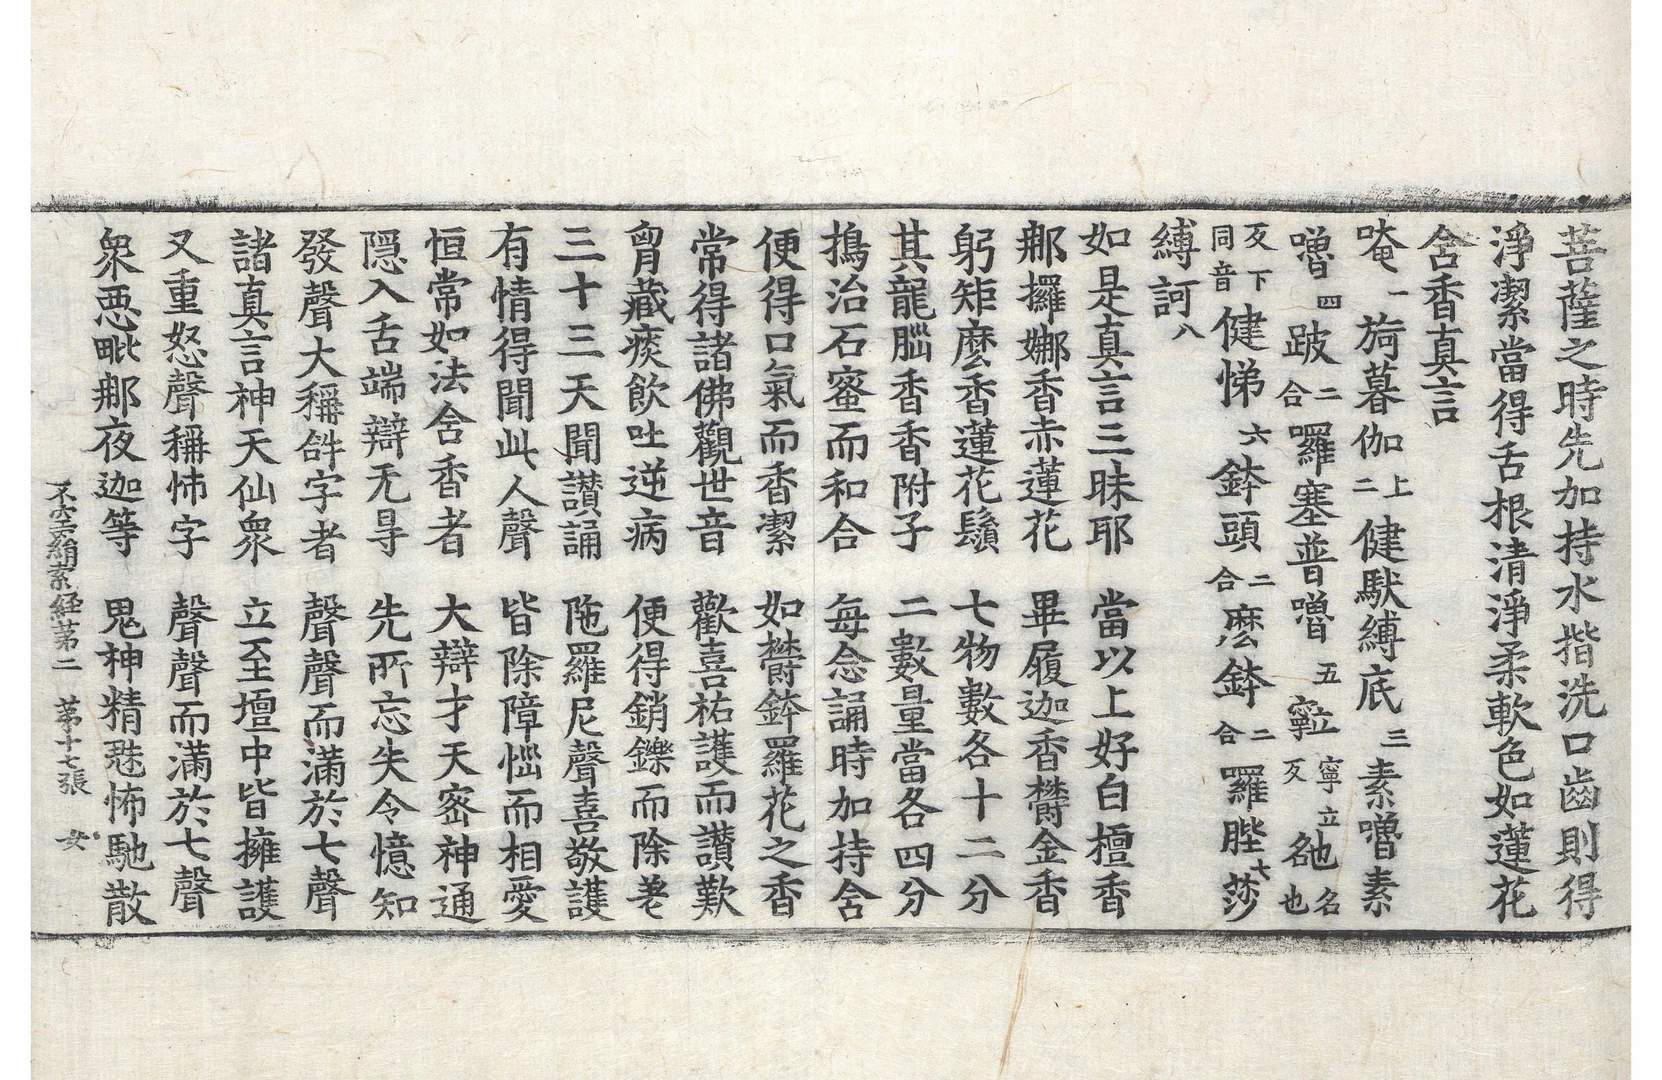 菩薩之時先加持水揩洗口齒則得
淨潔當得舌根清淨柔軟色如蓮花
含香真言
唵一旖暮伽上二健馱縛底三素嚕素
嚕四跛二合囉塞普嚕五㘑寧立反䶔名也名
反下同音健悌六鉢頭二合麽鉢二合囉陛七莎
縛訶八
如是真言三昧耶 當以上好白檀香
那攞娜香赤蓮花 畢履迦香欝金香
躬矩麽香蓮花鬚 七物數各十二分
其龍腦香香附子 二數量當各四分
擣治石蜜而和合 每念誦時加持含
便得口氣而香潔 如欝鉢羅花之香
常得諸佛觀世音 歡喜祐護而讃歎
胷藏痰飲吐逆病 便得銷鑠而除差
三十三天聞讃誦 陁羅尼聲喜敬護
有情得聞此人聲 皆除障惱而相愛
恒常如法含香者 大辯才天密神通
隱入舌端辯无㝵 先所忘失令憶知
發聲大稱𤙖字者 聲聲而滿於七聲
諸真言神天仙衆 立至壇中皆擁護
又重怒聲稱怖字 聲聲而滿於七聲
衆惡毗那夜迦等 鬼神精魅怖馳散
不空羂索経第二 第十七張 女